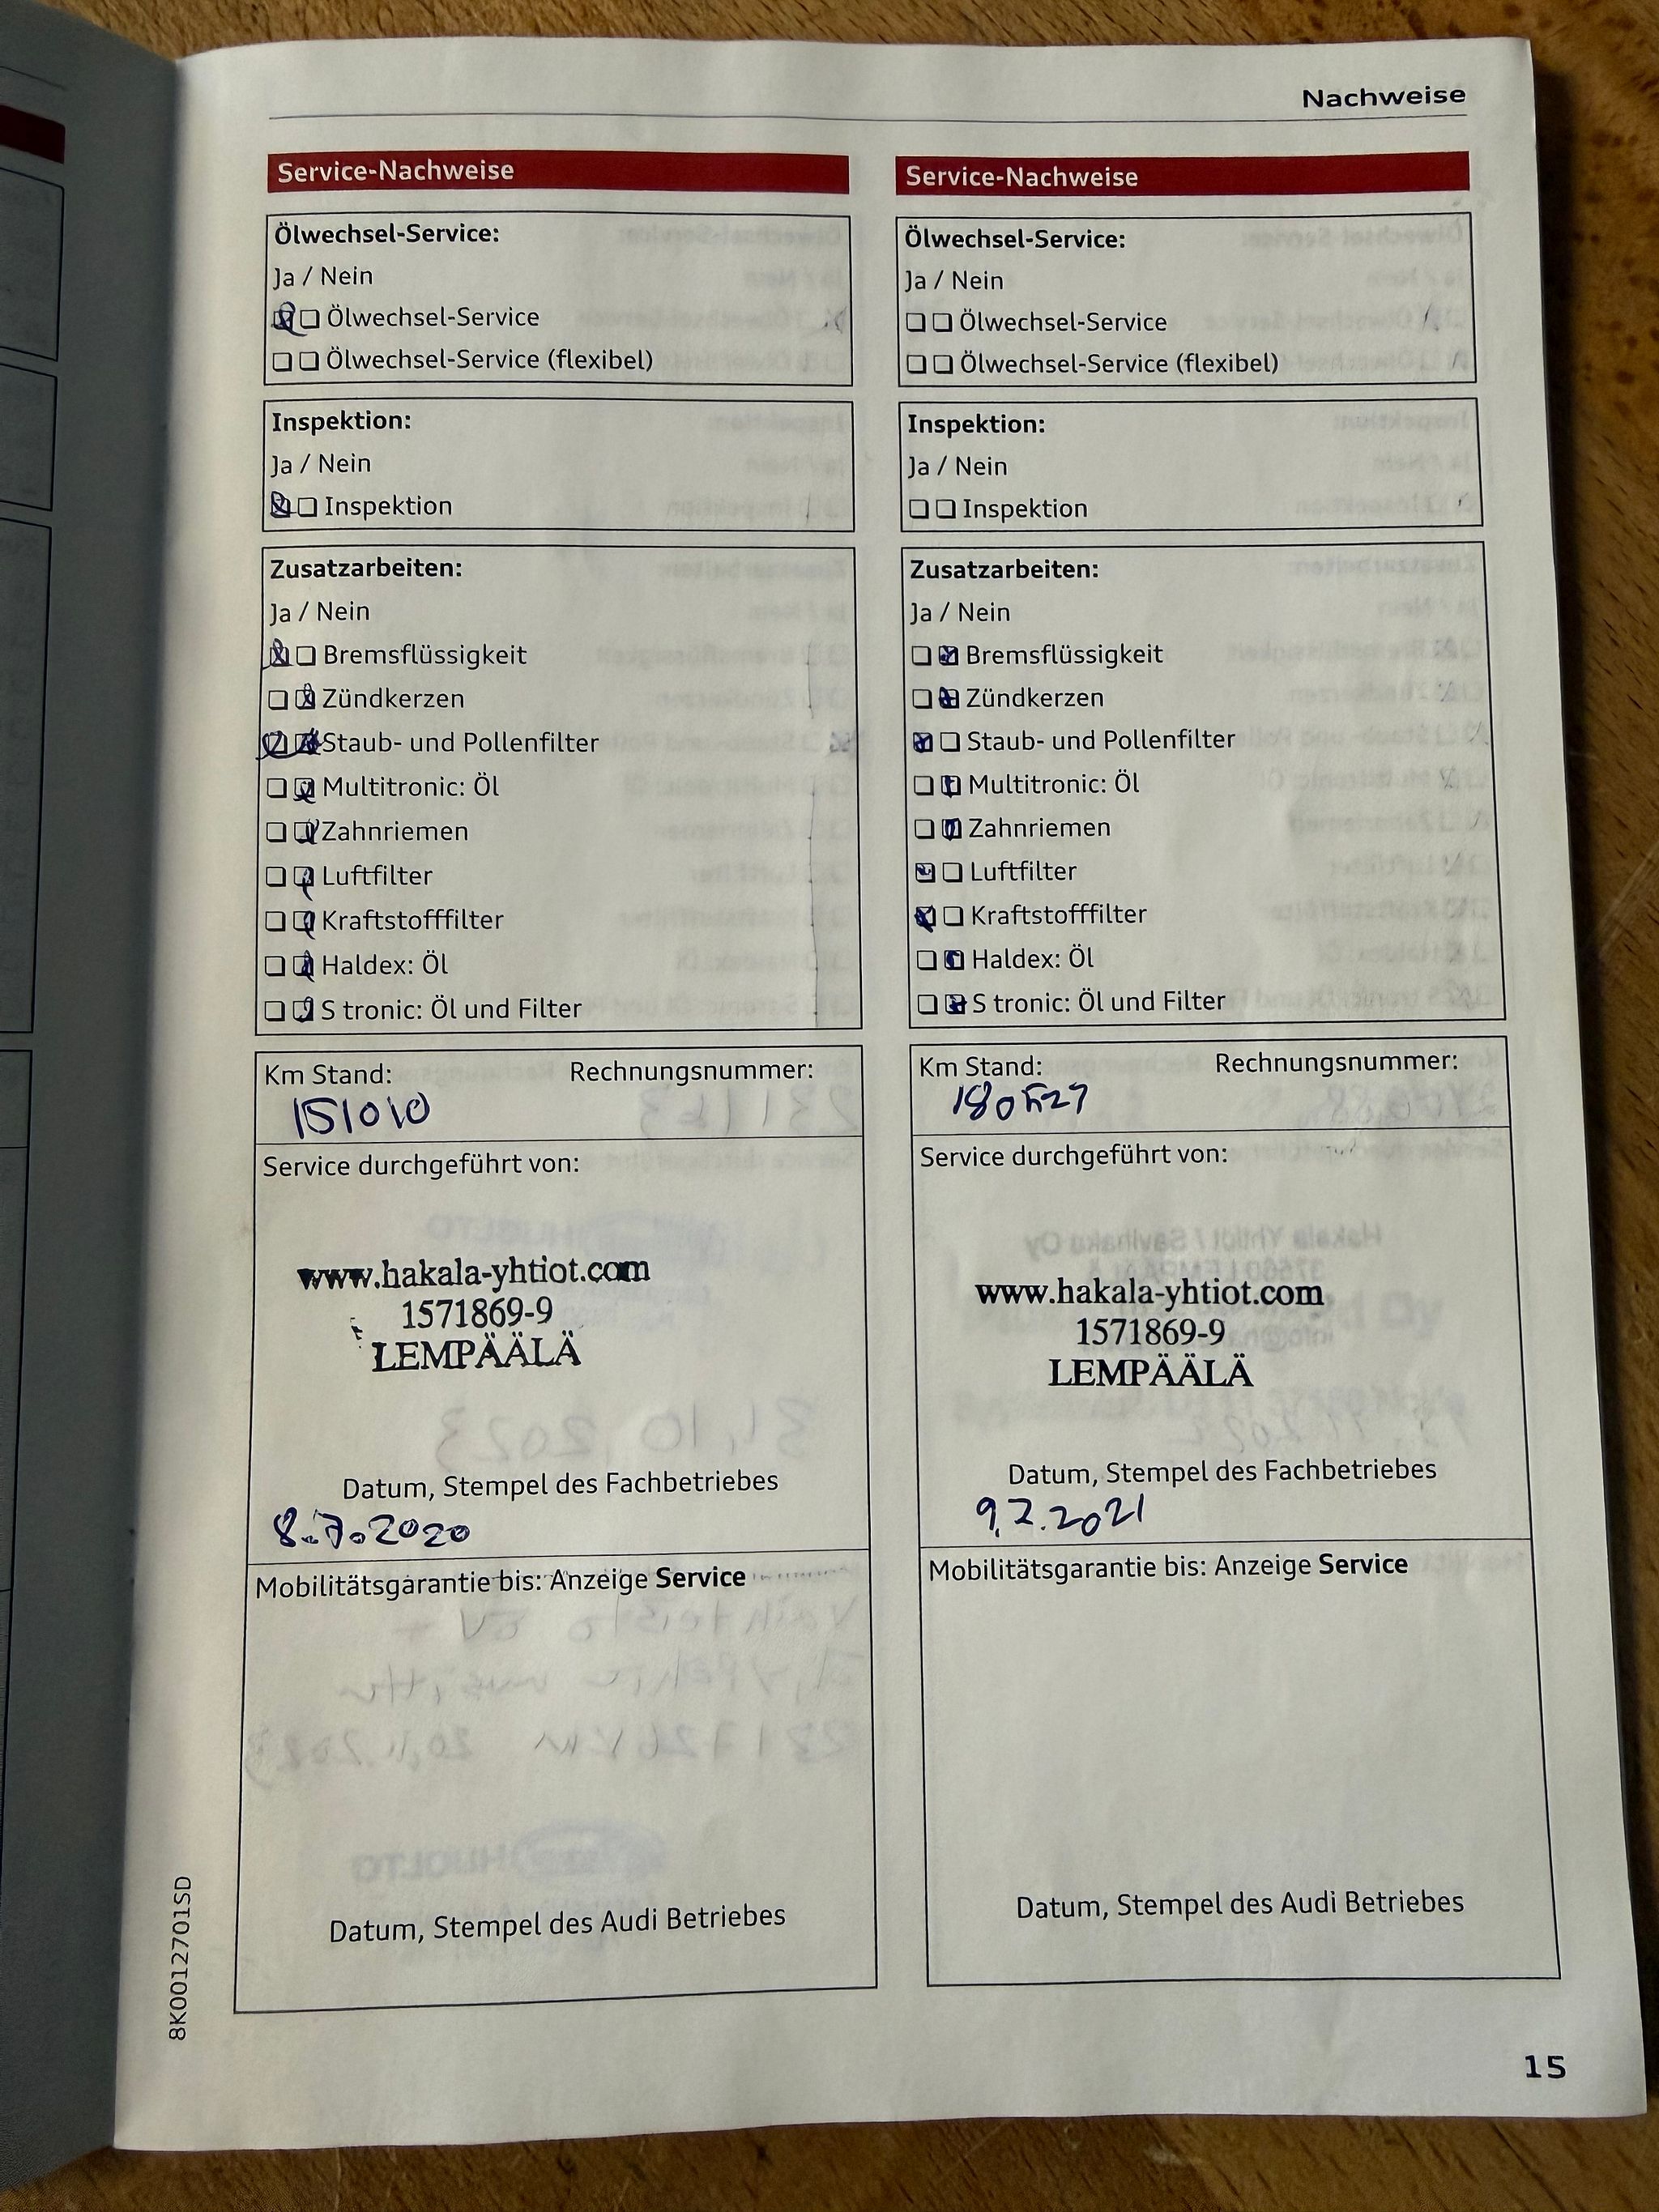 Nachweise
Service-Nachweise
Ölwechsel-Service:
Ja / Nein
Ölwechsel-Service
Ölwechsel-Service (flexibel)
Inspektion:
Ja / Nein
Inspektion
Zusatzarbeiten:
Ja / Nein
Bremsflüssigkeit
Zündkerzen
Staub- und Pollenfilter
Multitronic: Öl
Zahnriemen
Luftfilter
Kraftstofffilter
Haldex: Öl
S tronic: Öl und Filter
Km Stand: Rechnungsnummer:
151010
Service durchgeführt von:
www.hakala-yhtiot.com
1571869-9
LEMPÄÄLÄ
Datum, Stempel des Fachbetriebes
8.7.2020
Mobilitätsgarantie bis: Anzeige Service
Datum, Stempel des Audi Betriebes
Service-Nachweise
Ölwechsel-Service:
Ja / Nein
Ölwechsel-Service
Ölwechsel-Service (flexibel)
Inspektion:
Ja / Nein
Inspektion
Zusatzarbeiten:
Ja / Nein
Bremsflüssigkeit
Zündkerzen
Staub- und Pollenfilter
Multitronic: Öl
Zahnriemen
Luftfilter
Kraftstofffilter
Haldex: Öl
S tronic: Öl und Filter
Km Stand: Rechnungsnummer:
180527
Service durchgeführt von:
www.hakala-yhtiot.com
1571869-9
LEMPÄÄLÄ
Datum, Stempel des Fachbetriebes
9.2.2021
Mobilitätsgarantie bis: Anzeige Service
Datum, Stempel des Audi Betriebes
8K0012701SD
15